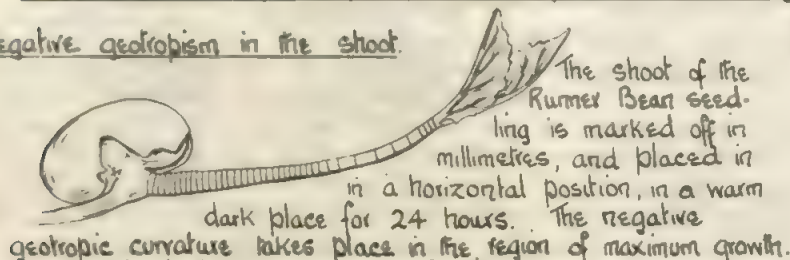 egative geotropism in the shoot.
The shoot of the
Runner Bean seed-
ling is marked off in
millimetres, and placed in
in a horizontal position, in a warm
dark place for 24 hours. The negative
geotropic curvature takes place in the region of maximum growth.